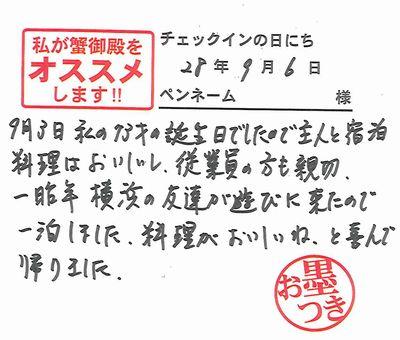 私が蟹御殿を
オススメ
します!!
チェックインの日にち
28年9月6日
ペンネーム 様
9月3日 私の73才の誕生日でしたので主人と宿泊
料理はおいしいし、従業員の方も親切、
一昨年 横浜の友達が遊びに来たので
一泊しました、料理がおいしいね、と喜んで
帰りました、
お墨つき